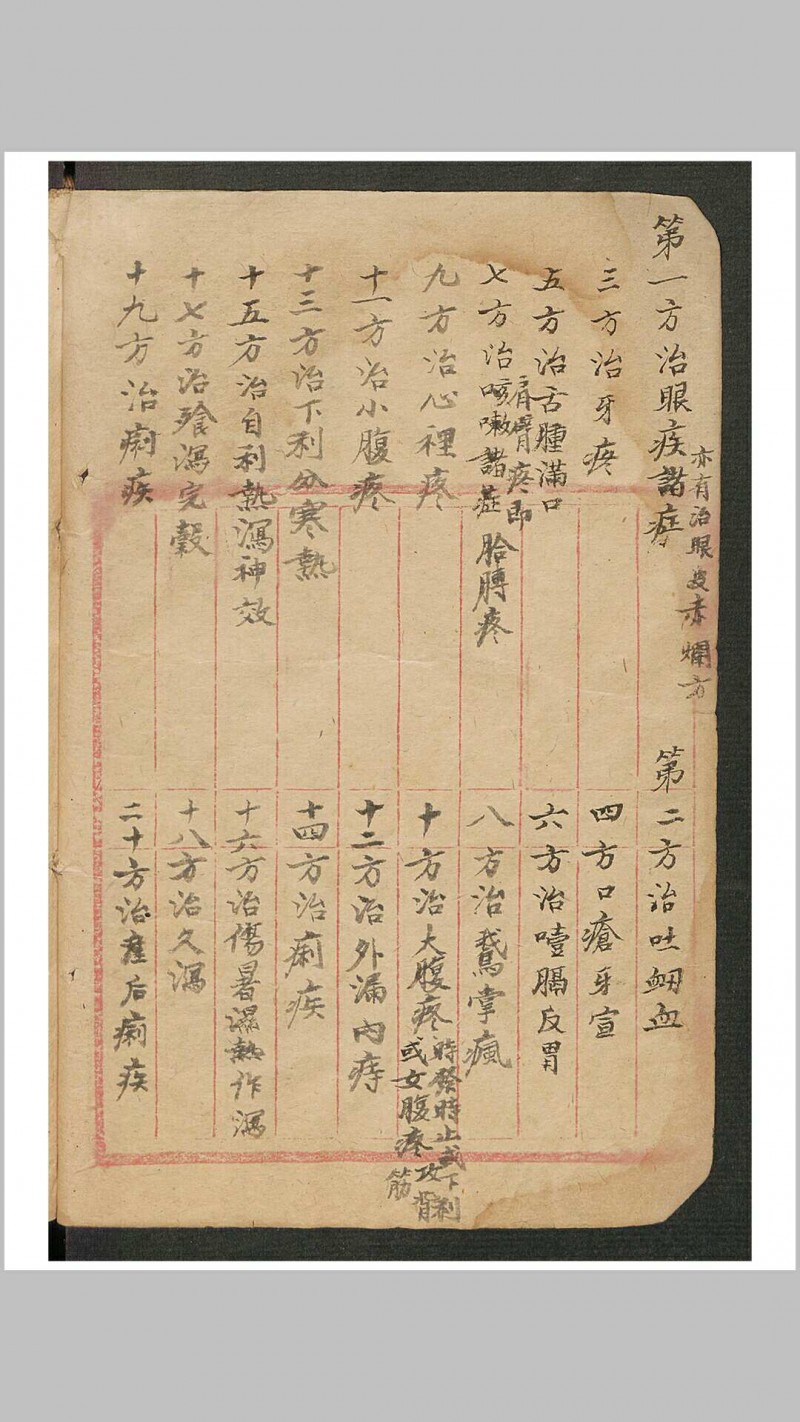 第一方治眼疾諸症
亦有治眼皮赤爛方
第二方治吐衂血
三方治牙疼
四方口瘡牙宣
五方治舌腫滿口
六方治噎膈反胃
七方治咳嗽諸症
肩臂疼即
胎膊疼
八方治鵞掌瘋
九方治心裡疼
十方治大腹疼
時發時止或下利
或女腹疼攻背
筋
十一方治小腹疼
十二方治外漏內痔
十三方治下利分寒熱
十四方治痢疾
十五方治自利熱瀉神效
十六方治傷暑濕熱作瀉
十七方治飱瀉完穀
十八方治久瀉
十九方治痢疾
二十方治產后痢疾